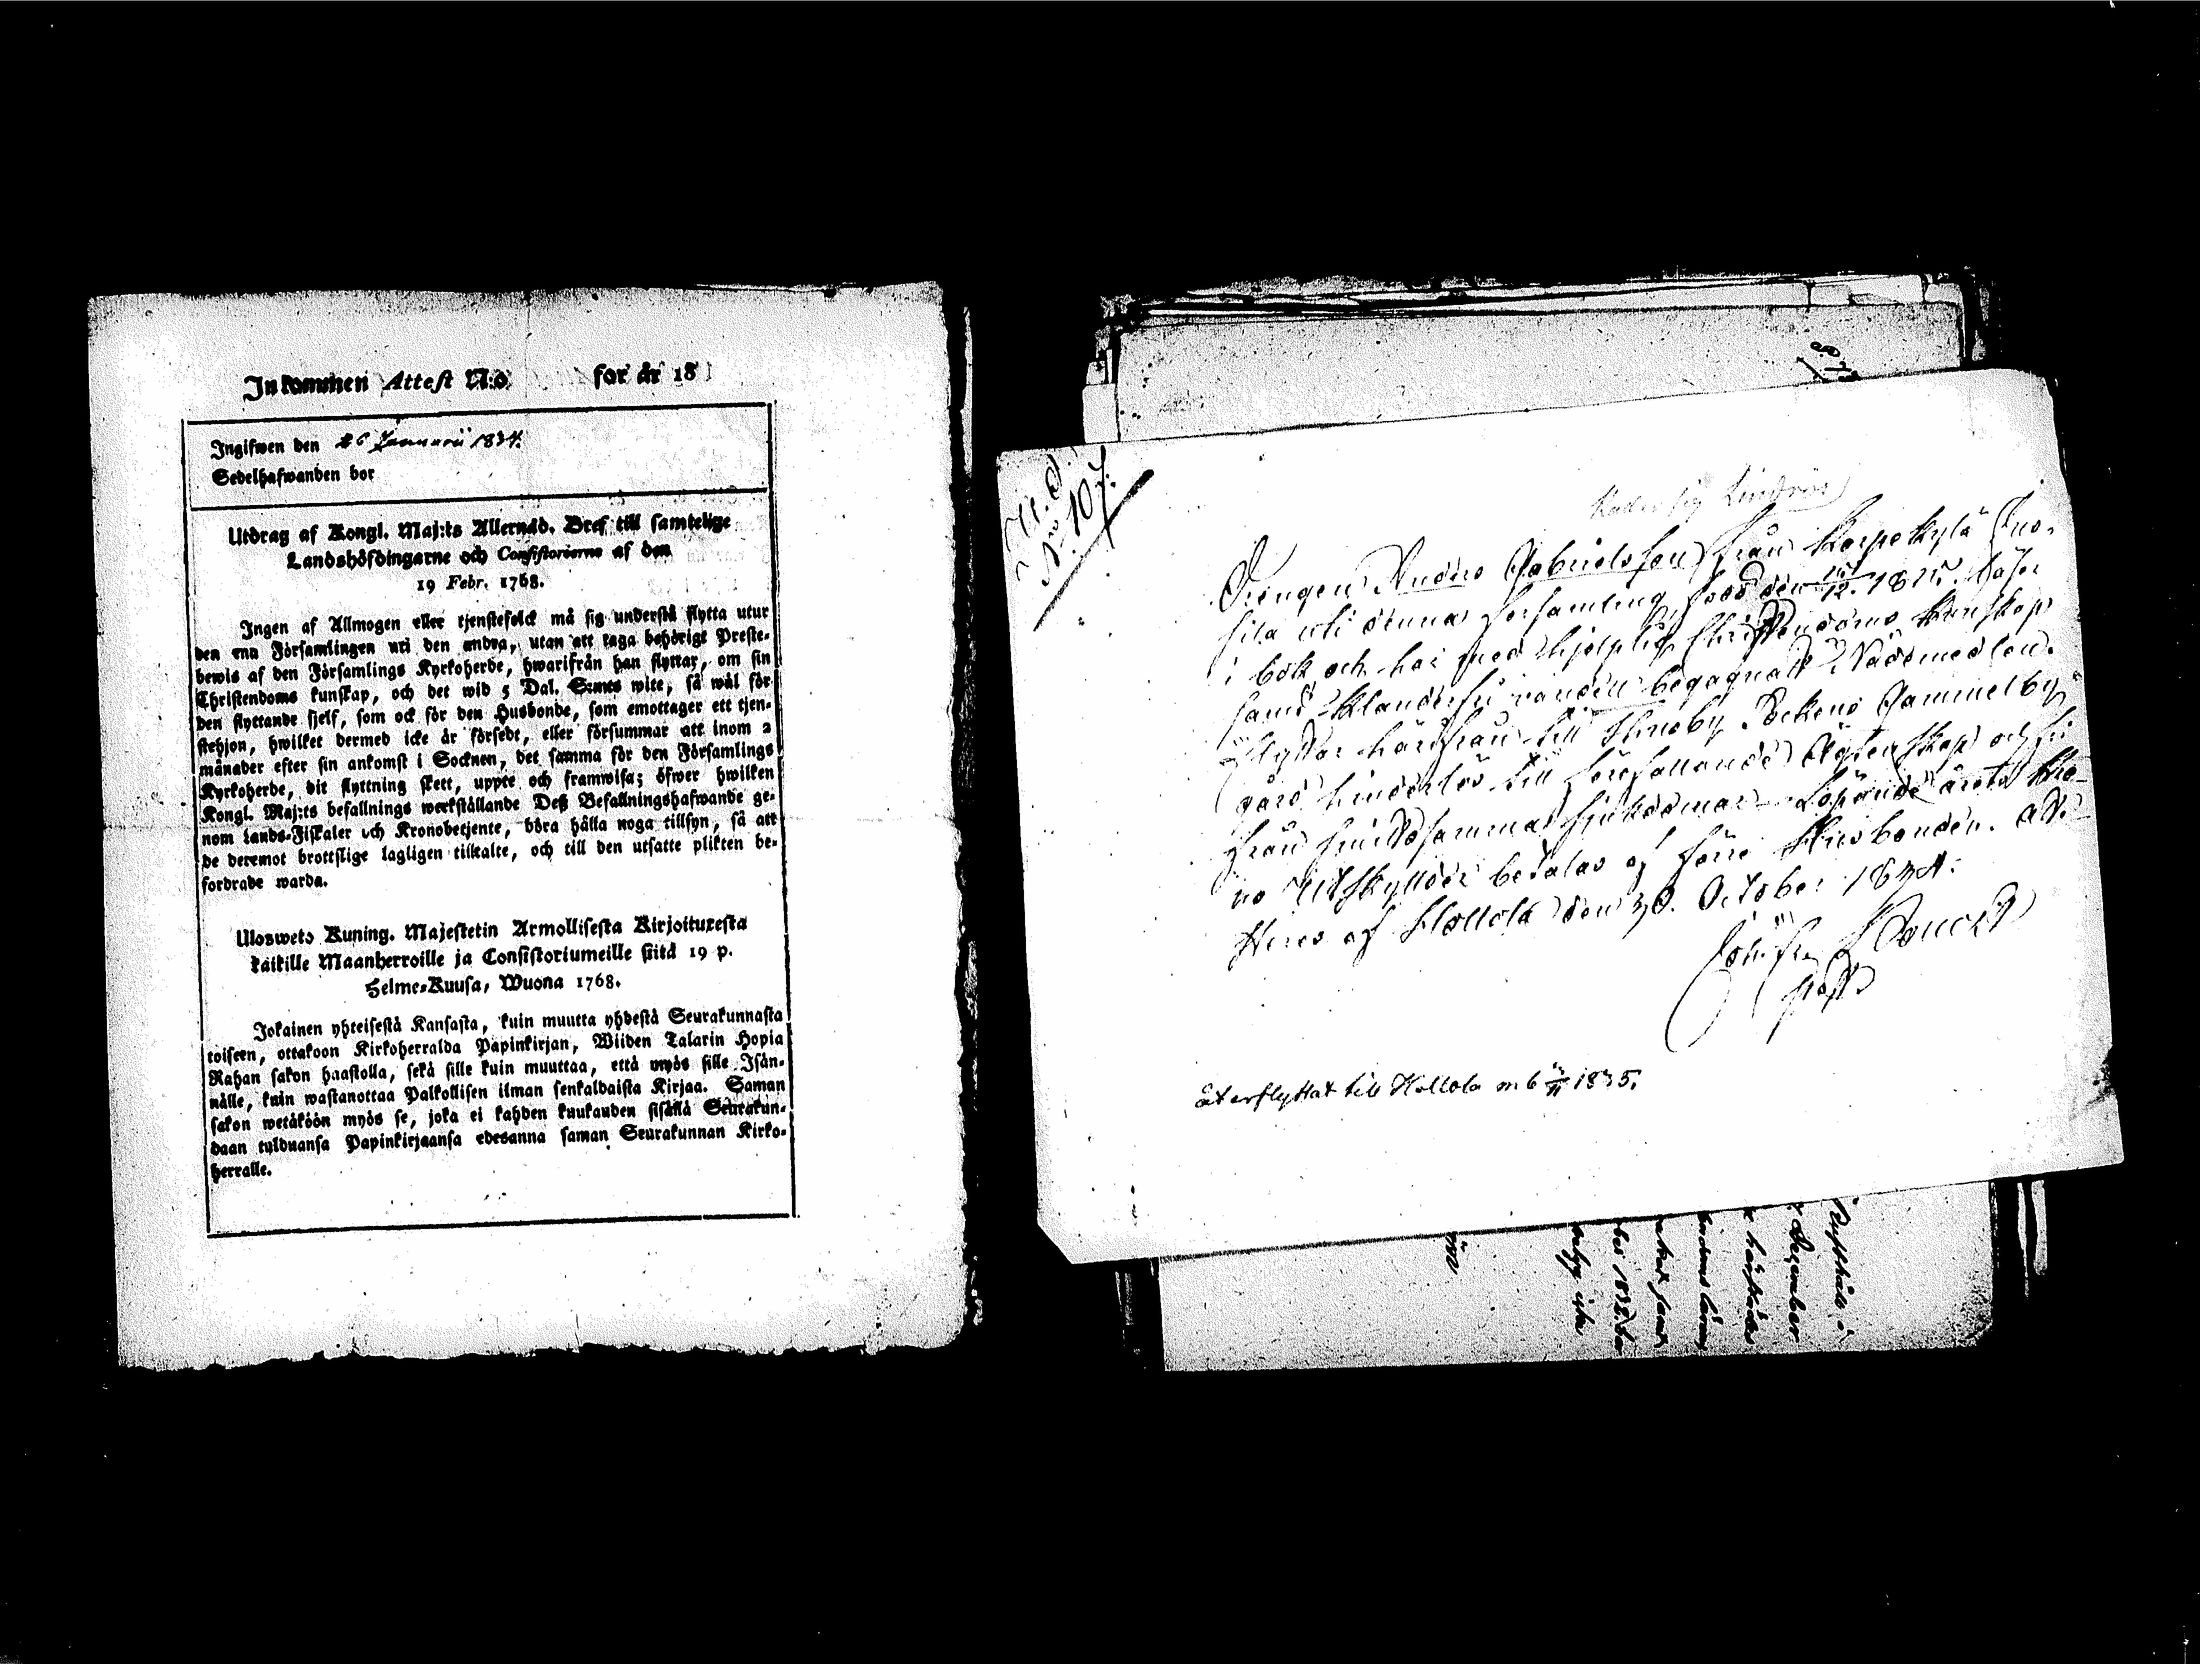 Inkommen Attest N:o för år 18
Ingifwen den 26 Januarii 1834.
Sedelhafwanden bor
Utdrag af Kongl. Maj:ts Allernåd. Bref till samtelige
Landshöfdingarne och Consistorierne af den
19 Febr. 1768.
Ingen af Allmogen eller tjenstefolck må sig understå flytta utur
den ena Församlingen uti den andra, utan att taga behörigt Preste-
bewis af den Församlings Kyrkoherde, hwarifrån han flyttar, om sin
Christendoms kunskap, och det wid 5 Dal. S:mts wite, så wäl för
den flyttande sjelf, som ock för den Husbonde, som emottager ett tjen-
stehjon, hwilket dermed icke är försedt, eller försummar att inom 2
månader efter sin ankomst i Socknen, det samma för den Församlings
Kyrkoherde, dit flyttning skett, uppte och framwisa; öfwer hwilken
Kongl. Maj:ts befallnings werkställande Deß Befallningshafwande ge-
nom Lands-Fiskaler och Kronobetjente, böra hålla noga tillsyn, så att
de deremot brottslige lagligen tilltalte, och till den utsatte plikten be-
fordrade warda.
Uloswets Kuning. Majestetin Armollisesta Kirjoituxesta
kaikille Maanherroille ja Consistoriumeille siitä 19 p.
Helme-Kuusa, Wuona 1768.
Jokainen yhteisestä Kansasta, kuin muutta yhdestä Seurakunnasta
toiseen, ottakoon Kirkoherralda Papinkirjan, Wiiden Talarin Hopia
Rahan sakon haastolla, sekä sille kuin muuttaa, että myös sille Isän-
nälle, kuin wastanottaa Palkollisen ilman senkaldaista Kirjaa. Saman
sakon wetäköön myös se, joka ei kahden kuukauden sisällä Seurakun-
daan tulduansa Papinkirjaansa edesanna saman Seurakunnan Kirko-
herralle.
N:o 107.
Kallar sig Lindros
Drengen Anders Gabrielsson från Korpikylä
uti denna församling född den 1815. läser
i bok och har med hjelplig Christendoms kunskap
samt klanderfri vandel begagnat Nådemedlen.
Flyttar härifrån till Thusby Sockens Gammelby
gård hinderlös till förefallande Ägtenskap och fri
från smittosamma sjukdomar. Löpande årets Kro-
no Utskylder betalas af förre Husbonden. Att-
teras af Hollola den 30. October 1834.
återflyttat till Hollola m. b. 1835.